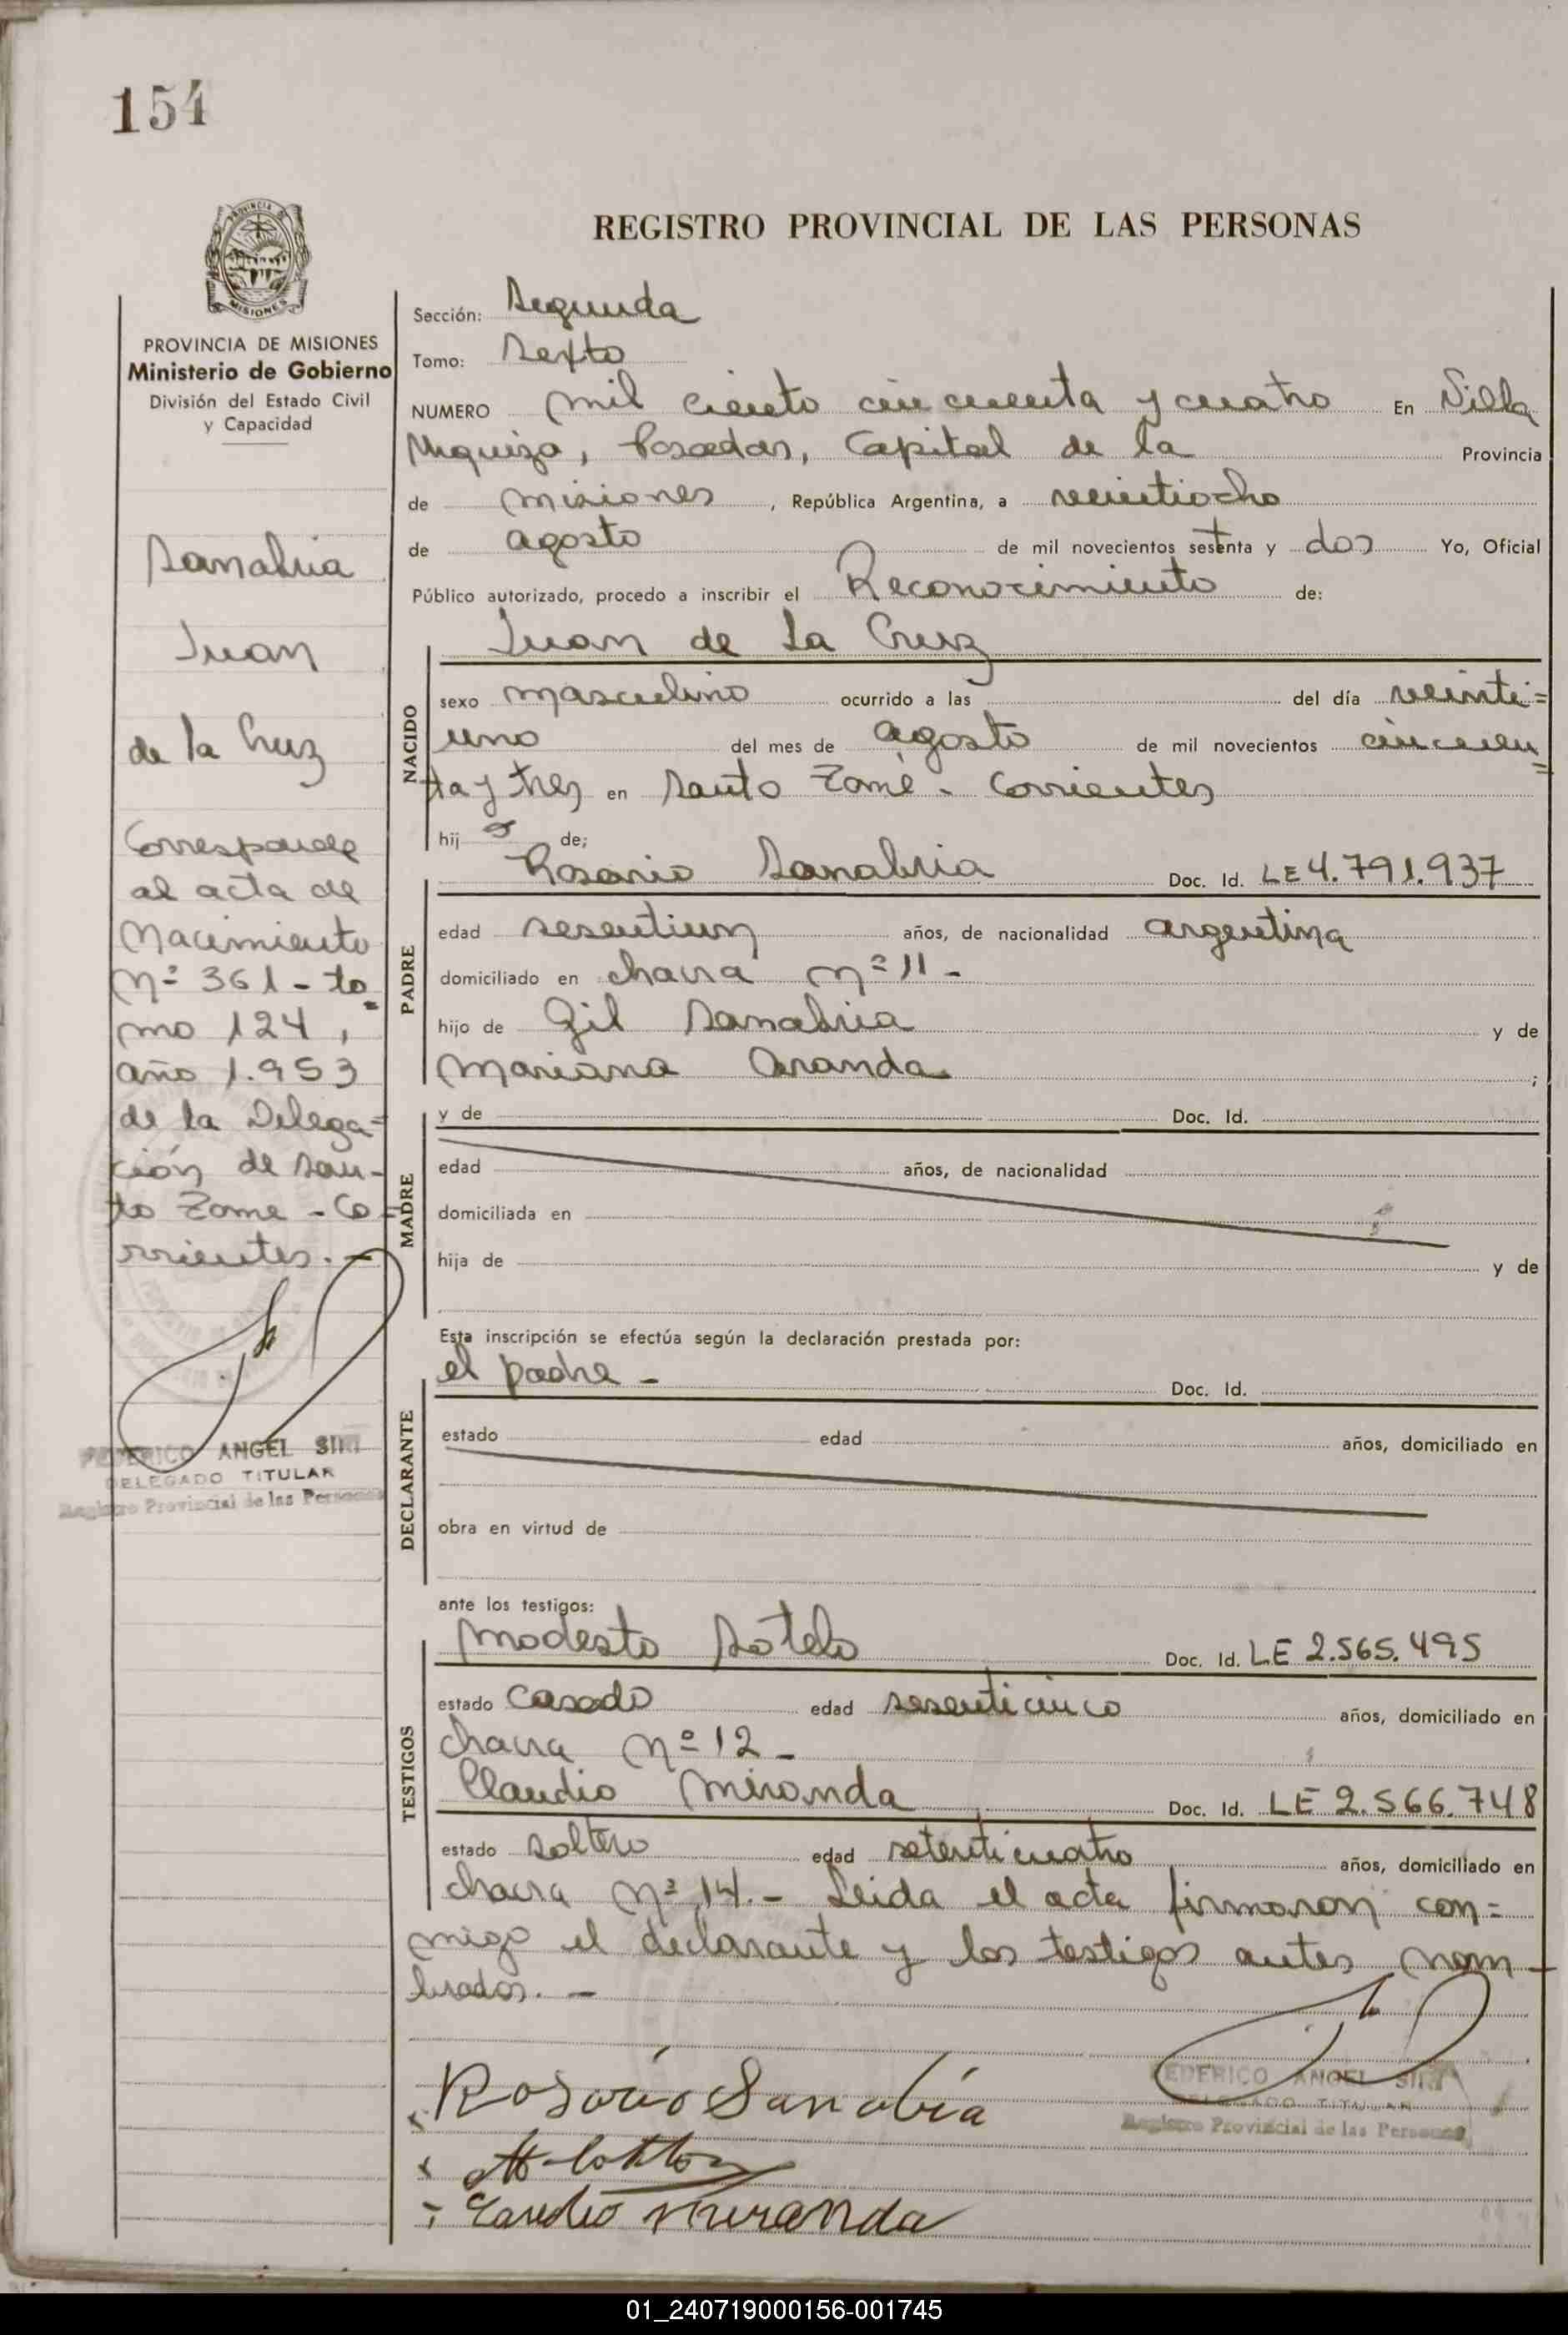 154
REGISTRO PROVINCIAL DE LAS PERSONAS
PROVINCIA DE MISIONES
Ministerio de Gobierno
División del Estado Civil
y Capacidad
Sanabria
Juan
de la Cruz
Corresponde
al acta de
Nacimiento
Nº 361 - to=
mo 124,
año 1.953
de la Delega=
ción de San-
to Tome - Co=
rrientes. -
FEDERICO ANGEL
DELEGADO TITULAR
Registro Provincial de las Personas
Sección: Segunda
Tomo: Sexto
NUMERO mil ciento cincuenta y cuatro En Villa
Urquiza, Posadas, Capital de la Provincia
de Misiones, República Argentina, a veintiocho
de agosto de mil novecientos setenta y dos Yo, Oficial
Público autorizado, procedo a inscribir el Reconocimiento de:
Juan de La Cruz
NACIDO
sexo masculino ocurrido a las del día veinti=
uno del mes de agosto de mil novecientos cincuen=
ta y tres en Santo Tomé - Corrientes
hijo de;
PADRE
Rosario Sanabria Doc. Id. LE 4.791.937
edad sesentiun años, de nacionalidad argentina
domiciliado en chacra nº 11 -
hijo de Gil Sanabria y de
Mariana Aranda ;
MADRE
y de Doc. Id.
edad años, de nacionalidad
domiciliada en
hija de y de
Esta inscripción se efectúa según la declaración prestada por:
DECLARANTE
el padre - Doc. Id.
estado edad años, domiciliado en
obra en virtud de
ante los testigos:
TESTIGOS
Modesto Sotelo Doc. Id. LE 2.565.495
estado casado edad sesenticinco años, domiciliado en
chacra Nº 12 -
Claudio Miranda Doc. Id. LE 2.566.748
estado soltero edad setenticuatro años, domiciliado en
chacra Nº 14. - Leida el acta firmaron con=
migo el declarante y los testigos antes nom-
brados. -
Rosario Sanabia
FEDERICO ANGEL
DELEGADO TITULAR
Registro Provincial de las Personas
Claudio Miranda
01_240719000156-001745